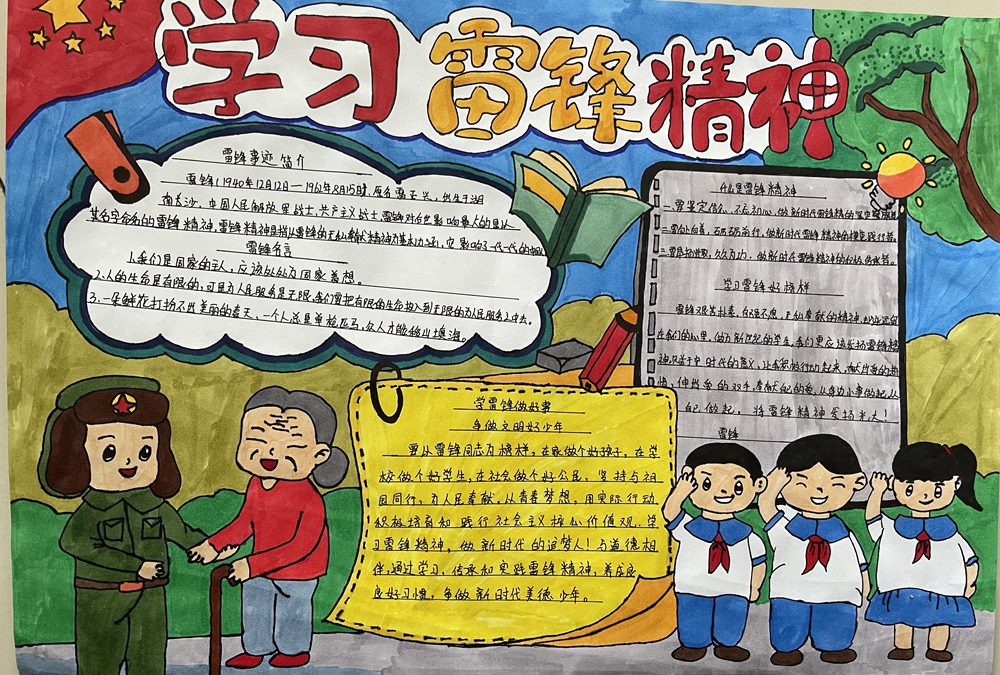 学习雷锋精神
雷锋事迹简介
雷锋(1940年12月12日—1962年8月15日,原名雷正兴,出生于湖
南长沙,中国人民解放军战士,共产主义战士,雷锋对后世影响最大的是以
其名字命名的雷锋精神,雷锋精神是指以雷锋的无私奉献精神为基本内涵,它影响了一代一代的中国
雷锋名言
1.我们是国家的主人,应该处处为国家着想。
2.人的生命是有限的,可是为人民服务是无限,我们要把有限的生命投入到无限的为人民服务之中去。
3.一朵鲜花打扮不出美丽的春天,一个人总是单枪匹马,众人才能移山填海。
什么是雷锋精神
一.要坚定信仰、不忘初心,做新时代雷锋精神的坚定
二.要向上向善、砥砺前行,做新时代雷锋精神的模范践行者。
三.要昂扬进取、久久为功,做新时代雷锋精神的积极传承者。
学习雷锋好榜样
雷锋艰苦朴素,自强不息,无私奉献的精神,
在我们的心里,做为新世纪的学生,我们更应该发扬雷锋精
神,以关于
情,伸出
自己做起,将雷锋精神发扬光大!
雷锋
学雷锋做好事
争做文明好少年
要从雷锋同志为榜样,在家做个好孩子,在学
校做个好学生,在社会做个好公民,坚持与祖
国同行,为人民奉献,从青春梦想,用实际行动
积极培育和践行社会主义核心价值观,学
习雷锋精神,做新时代的追梦人!与道德相
伴,通过学习、传承和实践雷锋精神,养成良
良好习惯,争做新时代美德少年。